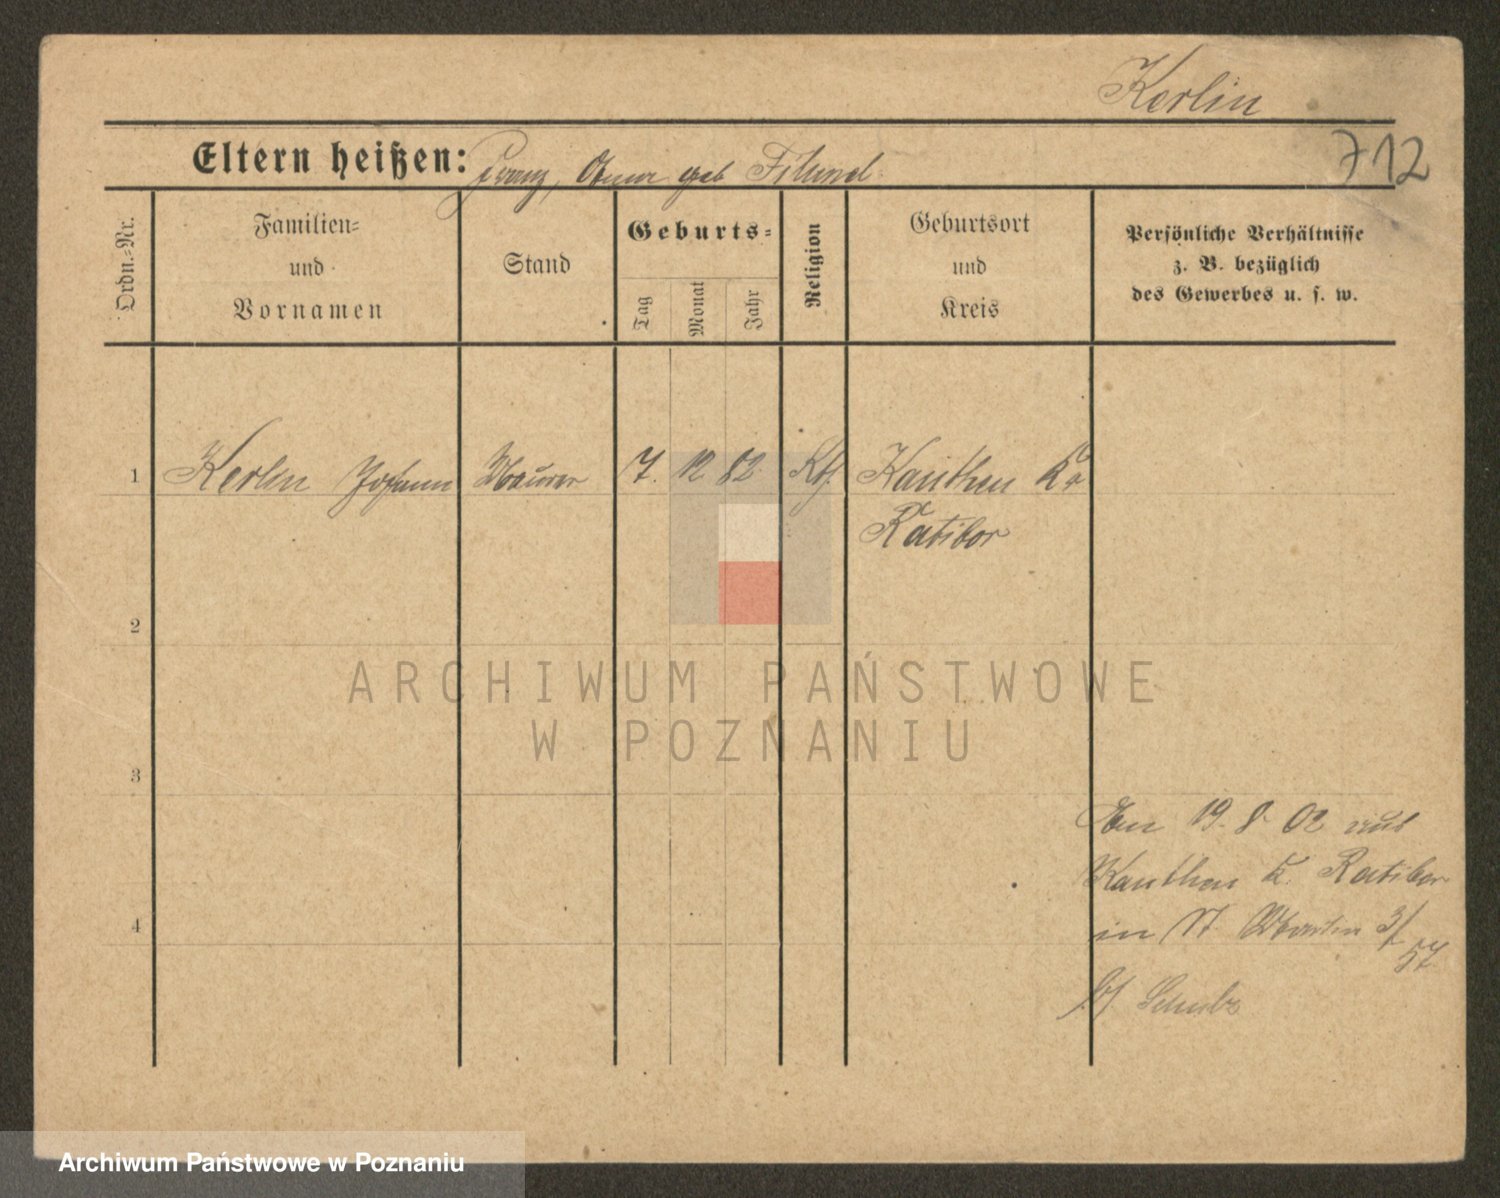 Kerlin
712
Eltern heißen: Franz, Anna geb
Ordn.-Nr.
Familien-
und
Vornamen
Stand
Geburts-
Tag
Monat
Jahr
Religion
Geburtsort
und
Kreis
Persönliche Verhältnisse
z. B. bezüglich
des Gewerbes u. s. w.
1 Kerlin Johann Maurer 7. 12 82. Kth. Kauthen Kr
Ratibor
2
ARCHIWUM PAŃSTWOWE
W POZNANIU
3
19. 8. 02 aus
Kauthen K. Ratibor
4
in St. Martin 3/
57
b/ Schulz
Archiwum Państwowe w Poznaniu